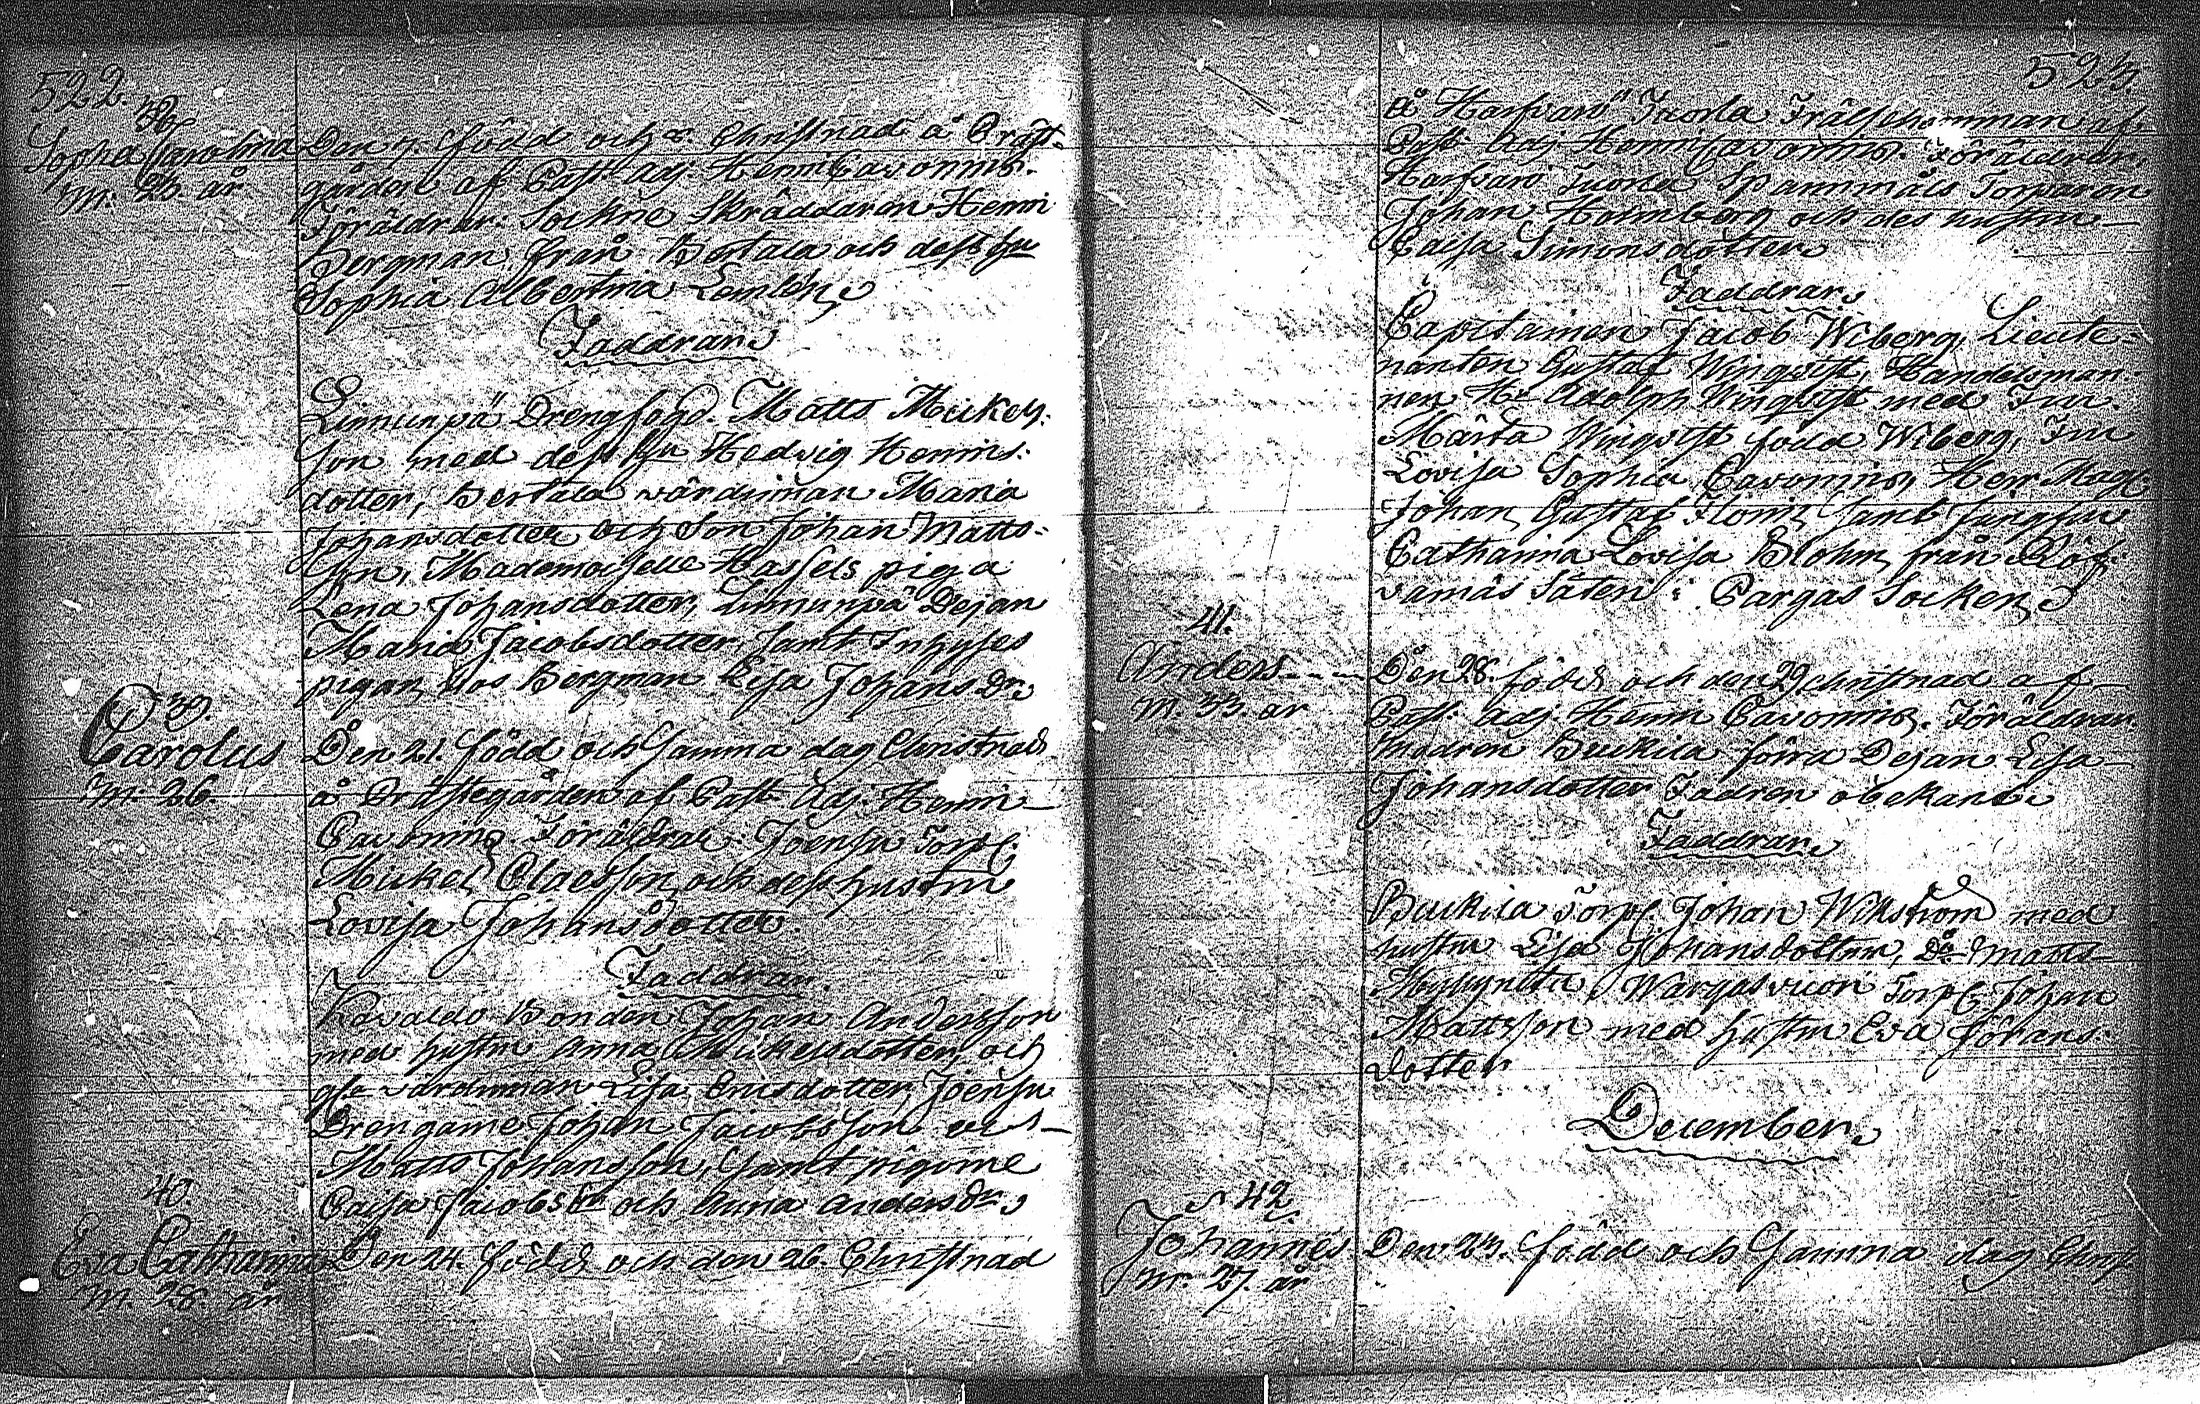 522.
38.
Sophia Carolina
m. 23. år
Den 7. född och 8. Christnad å Präst-
gården af Past. adj. Henric Cavonius.
Föräldrar: Sockne Skräddaren Henric
Bergman från Bertala och dess hu
Sophia Albertina
Faddrar
Drengfogd. Matts Mickels-
son med dess hu Hedvig Henrics-
dotter, Bertala värdinnan Maria
Johansdotter och Son Johan Matts-
son, Mademoiselle Hassels piga
Lena Johansdotter, Dejan
Maria Jacobsdotter, samt Inhyses
pigan hos Bergman Lisa Johans Dr.
39.
Carolus
m. 26.
Den 21. född och samma dag Christnad
å Prästegården af Past. Adj. Henric
Cavonius. Föräldrar: Joensu Torp.
Mickel Claesson och dess hustru
Lovisa Johansdotter.
Faddrar.
Bonden Johan Andersson
med hustru Anna Mickelsdotter, och
värdinnan Lisa Ericsdotter, Joensu
Drengarne Johan Jacobsson och
Matts Johansson, samt pigorne
Caisa Jacobs Dr och Anna Anders Dr.
40.
Eva Catharina
m. 28. år
Den 24. född och den 26. Christnad
523.
å Harfvari Juorla Frälsehemman af
Past. Adj. Henric Cavonius. Föräldrar:
Harfvari Juorla Torparen
Johan Holmberg och des hustru
Caisa Simonsdotter
Faddrar
Capitainen Jacob Wiberg, Lieute-
nanten Gustaf Wingqvist, Handelsman-
nen Hr Adolph Wingqvist med Fru
Märta Wingqvist född Wiberg, Fru
Lovisa Sophia Cavonius, Herr Mag.
Johan Gustaf samt Jungfru
Catharina Lovisa Blohm, från
Säteri i Pargas Socken
41.
Anders
m. 33. år
Den 28. född och den 29 christnad af
Past. Adj. Henric Cavonius. Föräldrar
modren Buckila förra Dejan Lisa
Johansdotter Fadren obekant.
Faddrar
Buckila Torp. Johan Wikström med
hustru Lisa Johansdotter, Do Matts
Torp. Johan
Mattsson med hustru Eva Johans-
dotter
December
42.
Johannes
m. 27. år
Den 23. född och samma dag Chris